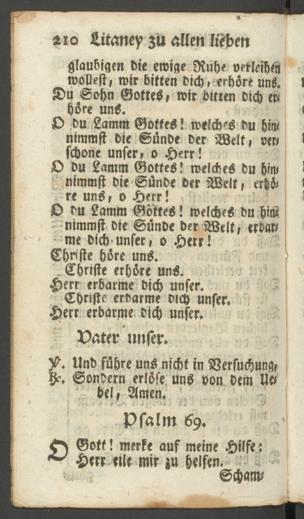 210 Litaney zu allen lieben
glaubigen die ewige Ruhe verleihen
wollest, wir bitten dich, erhöre uns.
Du Sohn Gottes, wir bitten dich er-
höre uns.
O du Lamm Gottes! welches du hin-
nimmst die Sünde der Welt, ver-
schone unser, o Herr!
O du Lamm Gottes! welches du hin-
nimmst die Sünde der Welt, erhö-
re uns, o Herr!
O du Lamm Gottes! welches du hin-
nimmst die Sünde der Welt, erbar-
me dich unser, o Herr!
Christe höre uns.
Christe erhöre uns.
Herr erbarme dich unser.
Christe erbarme dich unser.
Herr erbarme dich unser.
Vater unser.
℣. Und führe uns nicht in Versuchung,
℟. Sondern erlöse uns von dem Ue-
bel, Amen.
Psalm 69.
O Gott! merke auf meine Hilfe:
Herr eile mir zu helfen.
Scham-